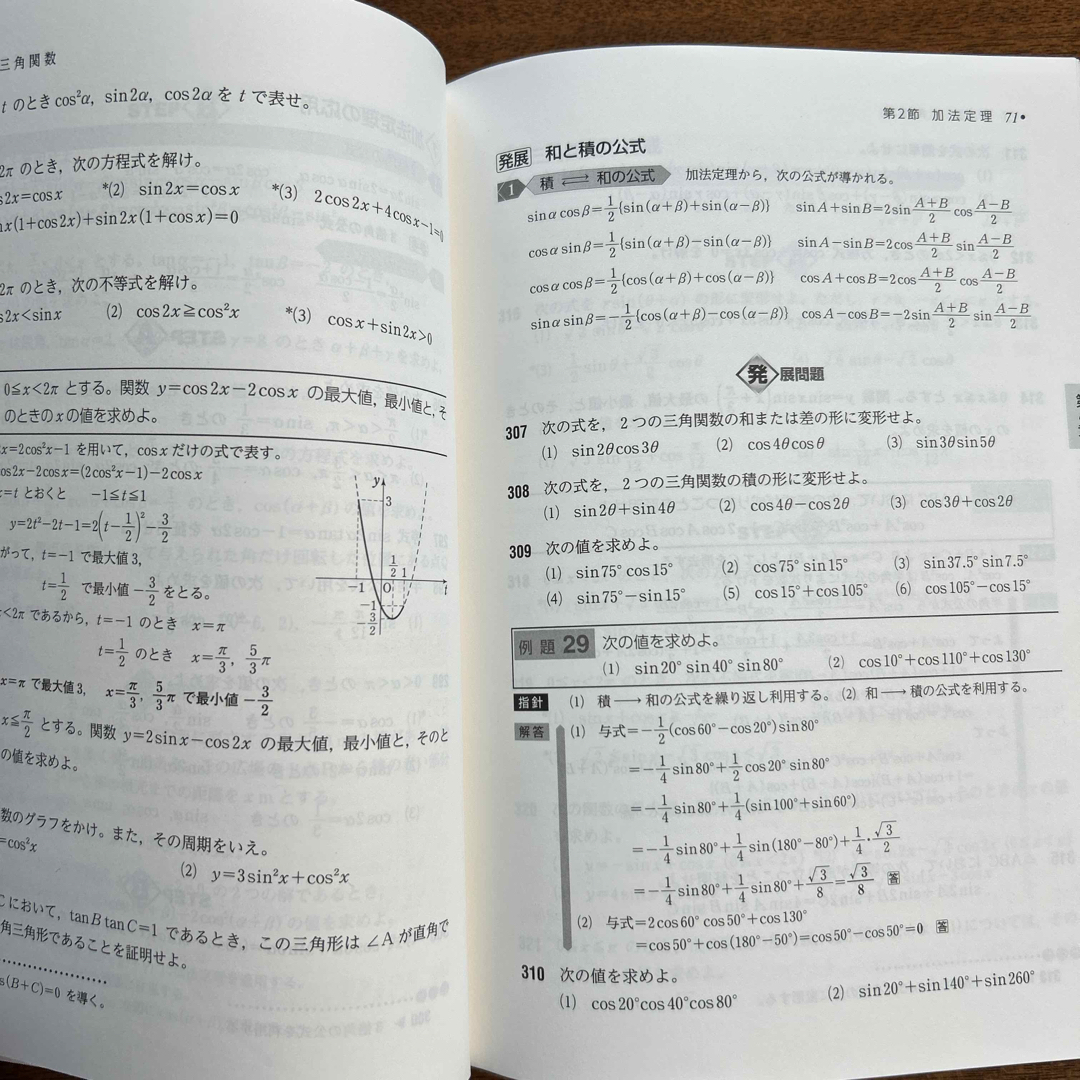 三角関数
t のとき cos²α, sin2α, cos2α を t で表せ。
2π のとき，次の方程式を解け。
s2x=cosx *(2) sin2x=cosx *(3) 2cos2x+4cosx−1=0
nx(1+cos2x)+sin2x(1+cosx)=0
2π のとき，次の不等式を解け。
s2x<sinx (2) cos2x≧cos²x *(3) cosx+sin2x>0
0≦x<2π とする。関数 y=cos2x−2cosx の最大値，最小値と，そ
のときのxの値を求めよ。
2x=2cos²x−1 を用いて，cosx だけの式で表す。
cos2x−2cosx=(2cos²x−1)−2cosx
x=t とおくと −1≦t≦1
y=2t²−2t−1=2(t−1/2)²−3/2
がって，t=−1 で最大値 3,
t=1/2 で最小値 −3/2 をとる。
x<2π であるから，t=−1 のとき x=π
t=1/2 のとき x=π/3, 5/3π
x=π で最大値3, x=π/3, 5/3π で最小値 −3/2
y
3
1/2
1
−1
O
t
−1
−3/2
x≦π/2 とする。関数 y=2sinx−cos2x の最大値，最小値と，そのと
の値を求めよ。
数のグラフをかけ。また，その周期をいえ。
=cos²x (2) y=3sin²x+cos²x
Cにおいて，tanBtanC=1 であるとき，この三角形は ∠A が直角で
角三角形であることを証明せよ。
s(B+C)=0 を導く。
第2節 加法定理 71
発展 和と積の公式
1 積 ⇄ 和の公式 加法定理から，次の公式が導かれる。
sinαcosβ=1/2{sin(α+β)+sin(α−β)} sinA+sinB=2sin (A+B)/2 cos (A−B)/2
cosαsinβ=1/2{sin(α+β)−sin(α−β)} sinA−sinB=2cos (A+B)/2 sin (A−B)/2
cosαcosβ=1/2{cos(α+β)+cos(α−β)} cosA+cosB=2cos (A+B)/2 cos (A−B)/2
sinαsinβ=−1/2{cos(α+β)−cos(α−β)} cosA−cosB=−2sin (A+B)/2 sin (A−B)/2
発展問題
307 次の式を，2つの三角関数の和または差の形に変形せよ。
(1) sin2θcos3θ (2) cos4θcosθ (3) sin3θsin5θ
308 次の式を，2つの三角関数の積の形に変形せよ。
(1) sin2θ+sin4θ (2) cos4θ−cos2θ (3) cos3θ+cos2θ
309 次の値を求めよ。
(1) sin75°cos15° (2) cos75°sin15° (3) sin37.5°sin7.5°
(4) sin75°−sin15° (5) cos15°+cos105° (6) cos105°−cos15°
例題 29 次の値を求めよ。
(1) sin20°sin40°sin80° (2) cos10°+cos110°+cos130°
指針 (1) 積⟶和の公式を繰り返し利用する。(2) 和⟶積の公式を利用する。
解答 (1) 与式=−1/2(cos60°−cos20°)sin80°
=−1/4 sin80°+1/2 cos20°sin80°
=−1/4 sin80°+1/4(sin100°+sin60°)
=−1/4 sin80°+1/4 sin(180°−80°)+1/4・√3/2
=−1/4 sin80°+1/4 sin80°+√3/8=√3/8 答
(2) 与式=2cos60°cos50°+cos130°
=cos50°+cos(180°−50°)=cos50°−cos50°=0 答
310 次の値を求めよ。
(1) cos20°cos40°cos80° (2) sin20°+sin140°+sin260°